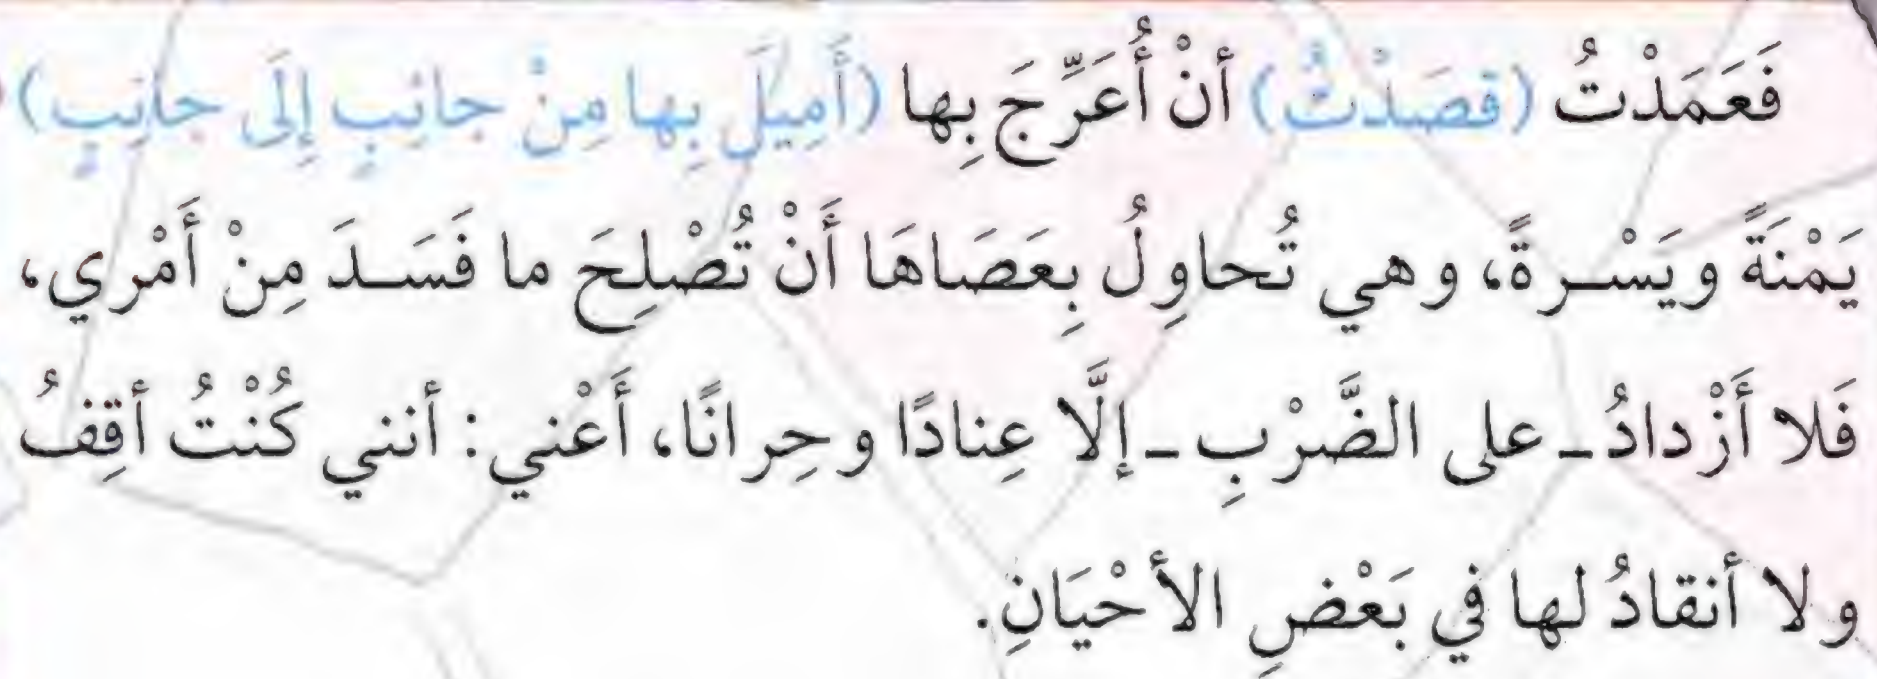 فَعَمَدْتُ (قصَدْتُ) أنْ أُعَرِّجَ بِها (أَمِيْلَ بِها مِنْ جانِبٍ إِلَى جانِبٍ)
يَمْنَةً ويَسْرةً، وهي تُحاوِلُ بِعَصَاهَا أَنْ تُصْلِحَ ما فَسَدَ مِنْ أَمْرِي،
فَلا أَزْدادُ ـ على الضَّرْبِ ـ إلَّا عِنادًا وحِرانًا، أَعْني: أنني كُنْتُ أقِفُ
ولا أنقادُ لها في بَعْضِ الأحْيَانِ.